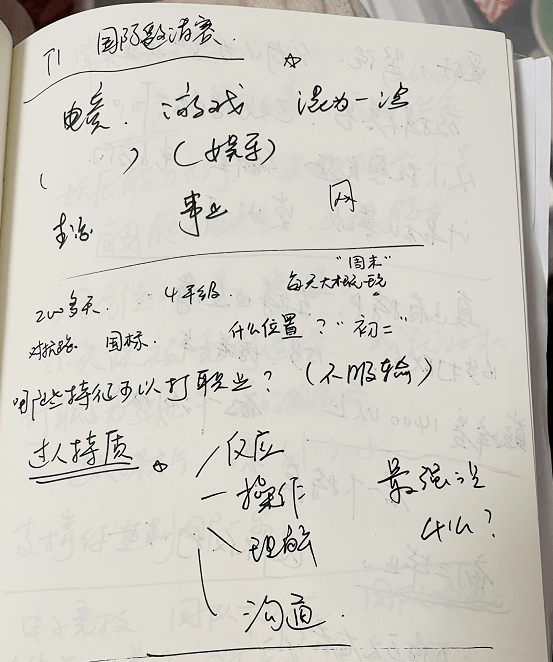 TI 国际邀请赛
电竞. 游戏 混为一谈
( ) (娱乐)
生活 事业 网
"周末"
200多天 4年级. 每天大概玩
对抗路 国标. 什么位置? "初二"
哪些特征可以打职业? (不服输)
过人特质 反应
操作 最强说
理解 什么?
沟通.